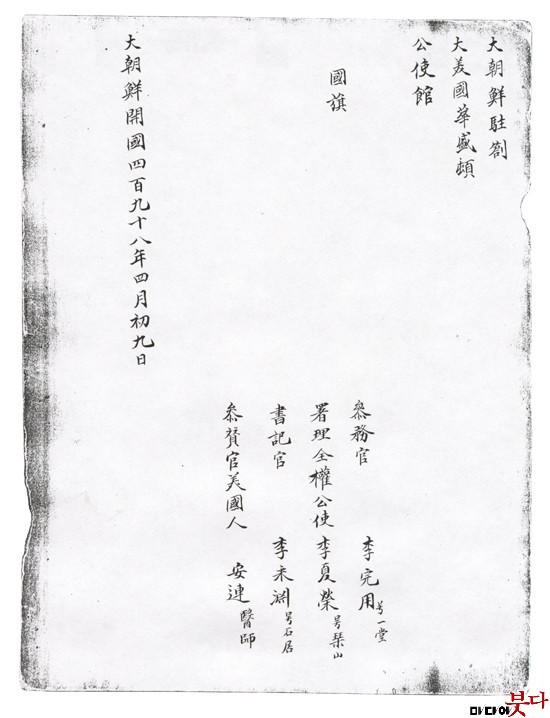 大朝鮮駐箚
大美國華盛頓
公使館
國旗
叅務官 李完用号一堂
署理全權公使 李夏榮号琹山
書記官 李采淵号石居
叅賛官美國人 安連醫師
大朝鮮開國四百九十八年四月初九日
미디어붓다